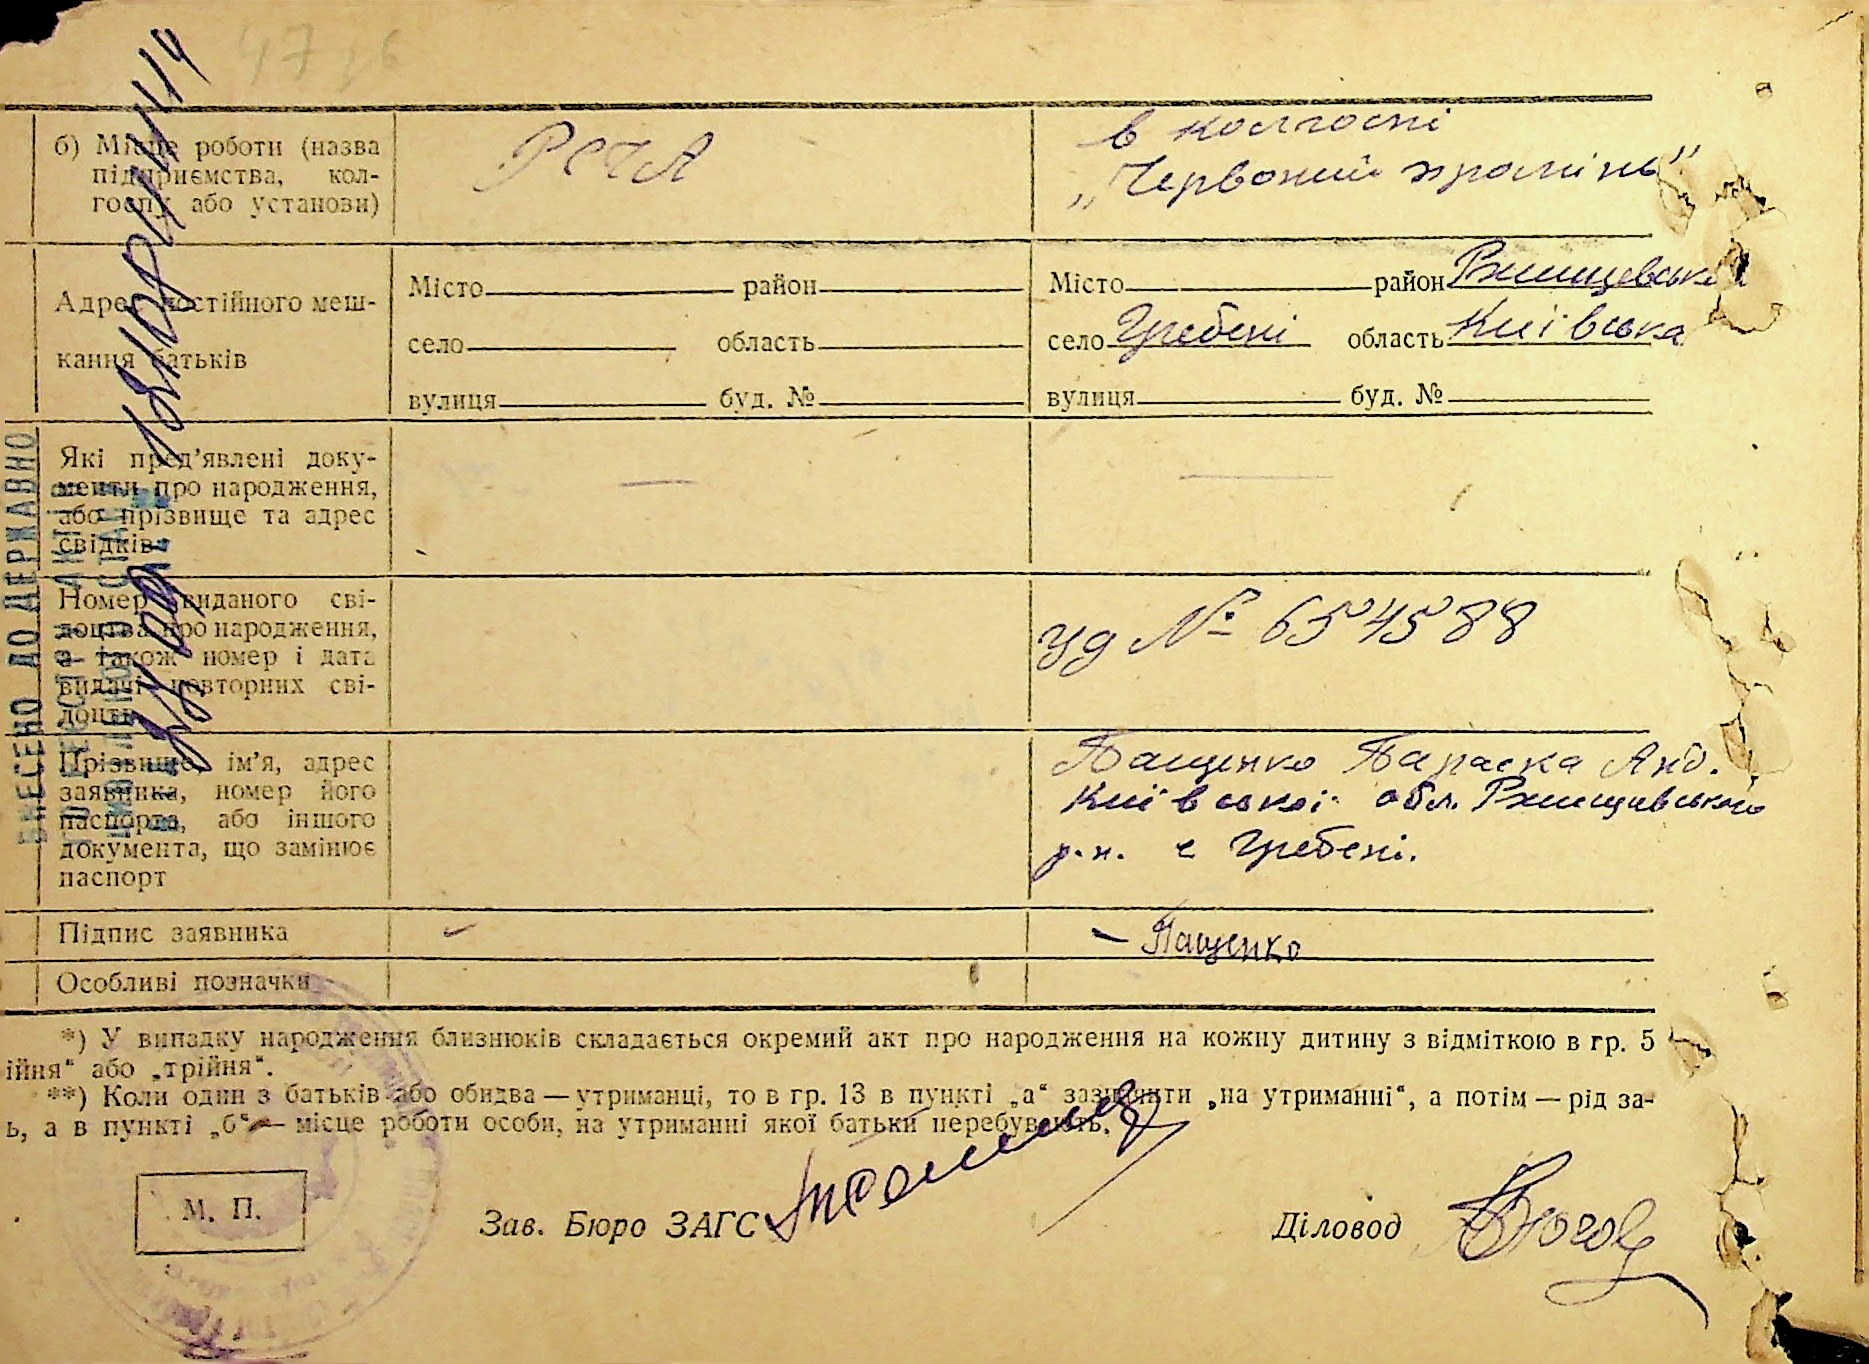 б) Місце роботи (назва
підприємства, кол-
госпу або установи)
РСЧА
в колгоспі
„Червоний промінь"
Адрес постійного меш-
кання батьків
Місто район
село область
вулиця буд. №
Місто район Ржищевський
село Гребені область Київська
вулиця буд. №
Які пред'явлені доку-
менти про народження,
або прізвище та адрес
свідків
Номер виданого сві-
доцтва про народження,
а також номер і дата
видачі повторних сві-
доцтв
№ 654588
Прізвище, ім'я, адрес
заявника, номер його
паспорта, або іншого
документа, що замінює
паспорт
Пащенко Параска Янд.
Київської обл. Ржищівського
р.н. с Гребені.
Підпис заявника
– Пащенко
Особливі позначки
*) У випадку народження близнюків складається окремий акт про народження на кожну дитину з відміткою в гр. 5
ійня“ або „трійня“.
**) Коли один з батьків або обидва — утриманці, то в гр. 13 в пункті „а“ зазначити „на утриманні“, а потім — рід за-
ь, а в пункті „б“ — місце роботи особи, на утриманні якої батьки перебувають.
М. П.
Зав. Бюро ЗАГС
Діловод
ВНЕСЕНО ДО ДЕРЖАВНО